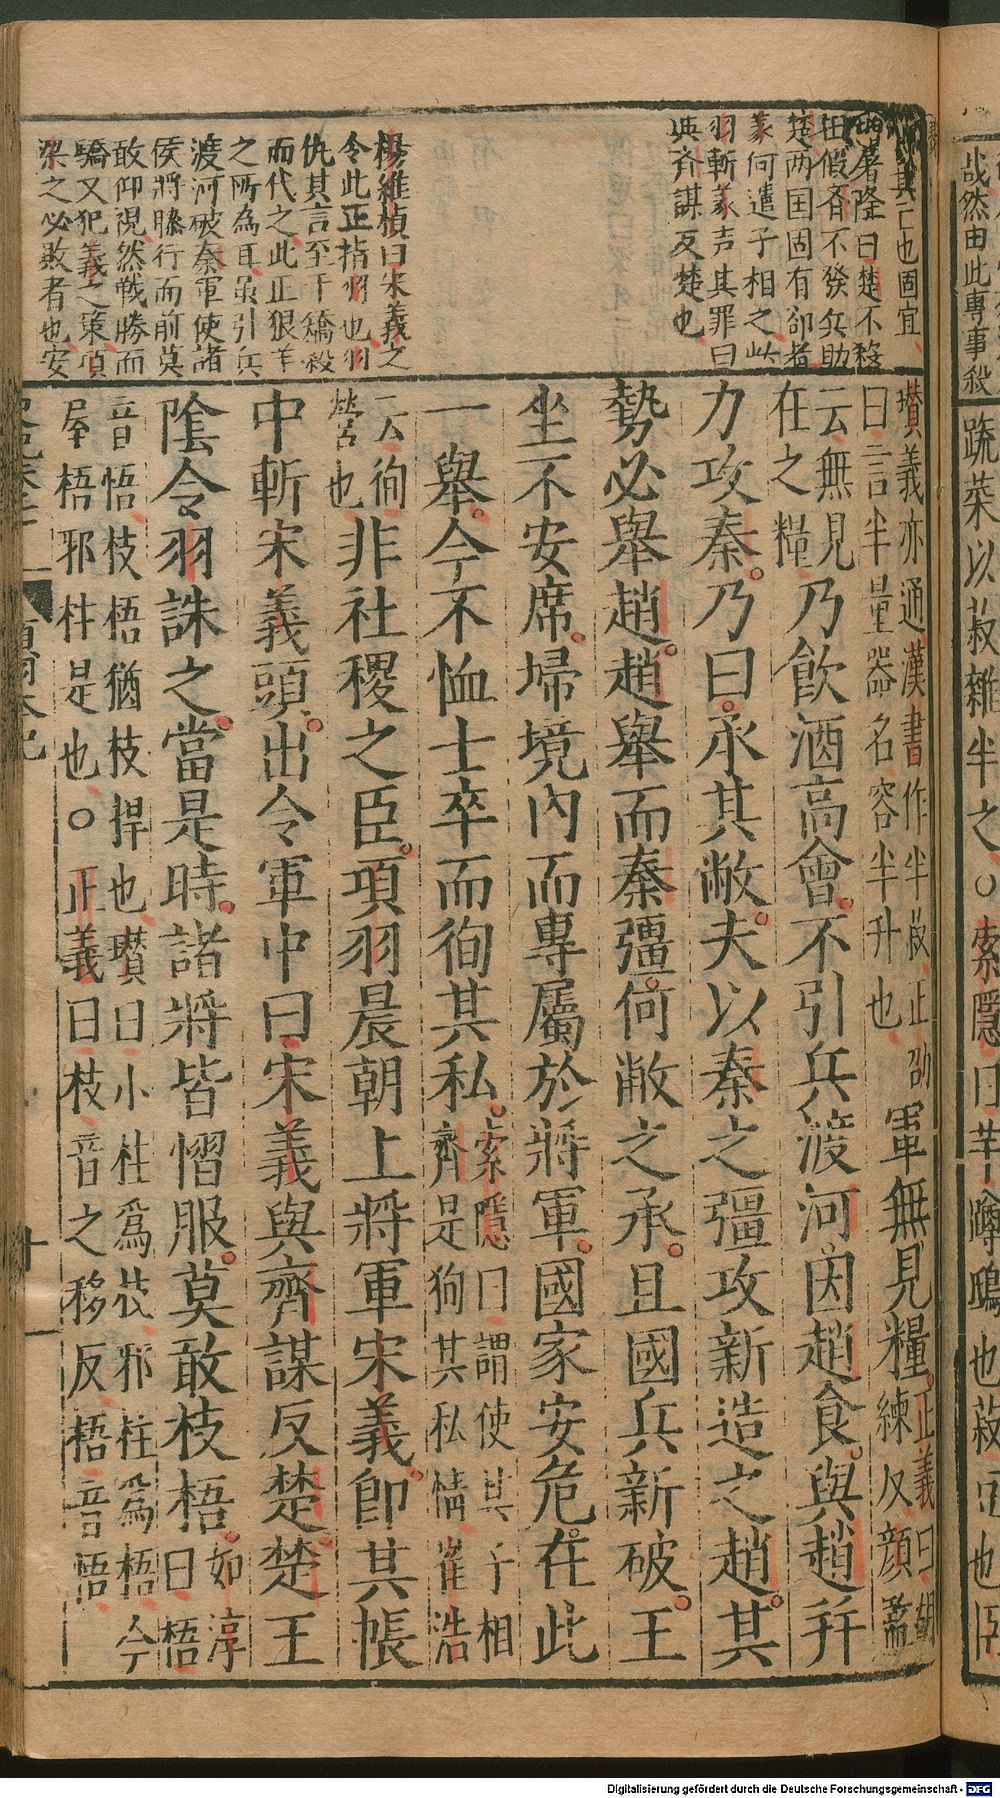 哉然由此專事殺
疏菜以菽雜半之○索隱曰芋蹲鴟也菽豆也
其亡也固宜
屠隆曰楚不殺
田假齊不發兵助
楚兩国固有卻者
義何遣子相之此
羽斬義声其罪曰
與齐謀反楚也
楊維楨曰宋義之
令此正指羽也羽
仇其言至于矯殺
而代之此正狠羊
之所為耳虽引兵
渡河破秦軍使諸
侯將膝行而前莫
敢仰視然戰勝而
驕又犯義之策項
梁之必敗者也安
瓚義亦通漢書作半菽正劭
曰言半量器名容半升也
軍無見糧。正義曰胡
練反顏監
云無見
在之糧
乃飲酒高會。不引兵渡河。因趙食。與趙并
力攻秦。乃曰。承其敝。夫以秦之彊攻新造之趙。其
勢必舉趙。趙舉而秦彊。何敝之承。且國兵新破。王
坐不安席。埽境內而專屬於將軍。國家安危。在此
一舉。今不恤士卒而徇其私。索隱曰謂使其子相
齊是徇其私情崔浩
云徇
營也
非社稷之臣。項羽晨朝上將軍宋義。即其帳
中斬宋義頭。出令軍中曰宋義與齊謀反楚。楚王
陰令羽誅之。當是時。諸將皆慴服。莫敢枝梧。如淳
曰梧
音悟枝梧猶枝捍也瓚曰小柱爲枝邪柱爲梧今
屋梧邪柱是也○正義曰枝音之移反梧音悟
項羽本紀
十一
Digitalisierung gefördert durch die Deutsche Forschungsgemeinschaft - DFG